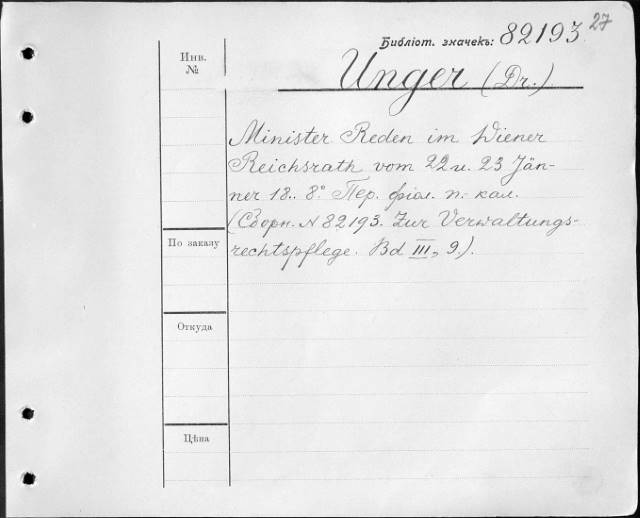 27
Библіот. значекъ: 82193.
Инв.
№
Unger (Dr.)
Minister Reden im Wiener
Reichsrath vom 22 u. 23 Jän-
ner 18.. 8° Пер. фіол. п. кал.
(Сборн. № 82193. Zur Verwaltungs-
rechtspflege. Bd III, 9.).
По заказу
Откуда
Цѣна